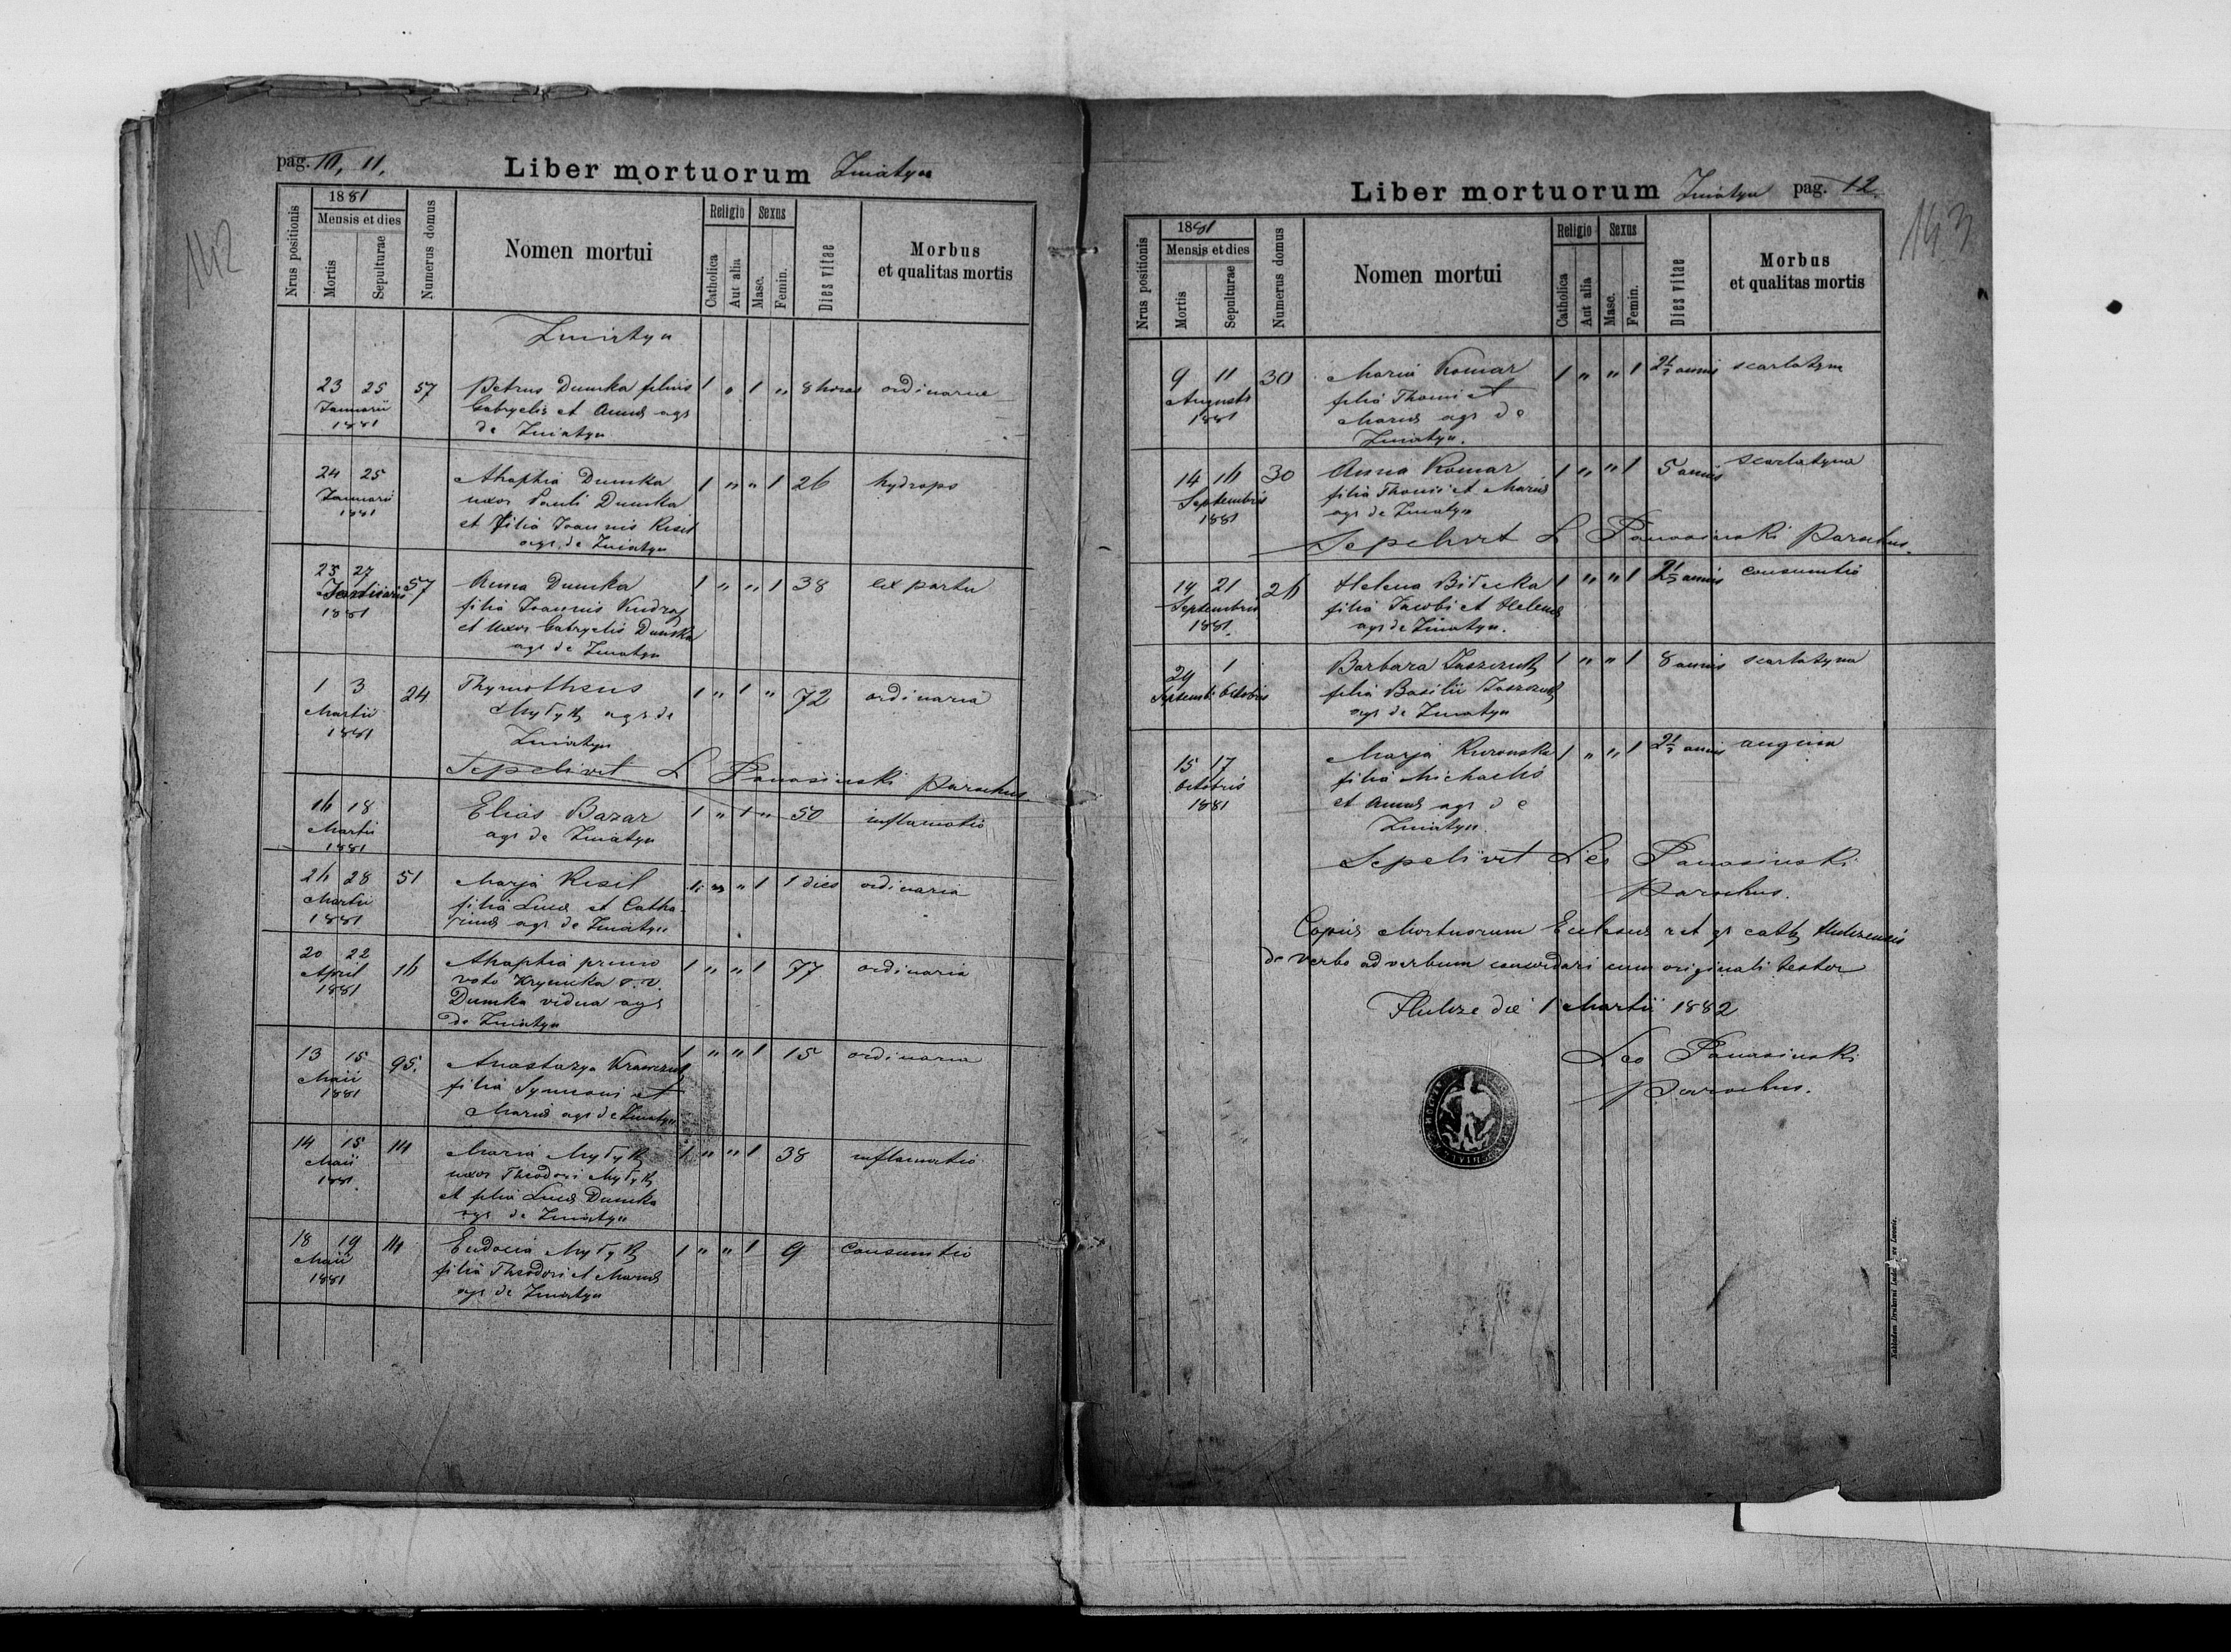 142
pag. 10, 11,
Liber mortuorum Zniatyn
1881
Nrus positionis
Mensis et dies
Mortis
Sepulturae
Numerus domus
Nomen mortui
Religio
Catholica
Aut alia
Sexus
Masc.
Femin.
Dies vitae
Morbus
et qualitas mortis
Zniatyn
23 25 57 Petrus Dumka filius 1 " 1 " 8 horas ordinariae
Januarii Gabryelis et Annae agr
1881 de Zniatyn
24 25 Ahaphia Dumka 1 " " 1 26 hydrops
Januarii uxor Pauli Dumka
1881 et filia Joannis Kisil
agr. de Zniatyn
25 27 57 Anna Dumka 1 " " 1 38 ex partu
Januarii filia Joannis
1881 et uxor Gabryelis Dumka
agr de Zniatyn
1 3 24 Thymotheus 1 " 1 " 72 ordinaria
Martii agr de
1881 Zniatyn
Sepelivit L Panasinski Parochus.
16 18 Elias Bazar 1 " 1 " 50 inflamatio
Martii agr de Zniatyn
1881
26 28 51 Marja Kisil 1 " " 1 1 dies ordinaria
Martii filia Lucae et Catha-
1881 rinae agr de Zniatyn
20 22 16 Ahaphia primo 1 " " 1 77 ordinaria
April voto Krymka s. v.
1881 Dumka vidua agr
de Zniatyn
13 15 95. Anastazya Krawczuk 1 " " 1 15 ordinaria
Maii filia Symeoni et
1881 Mariae agr de Zniatyn
14 15 14 Maria 1 " " 1 38 inflamatio
Maii uxor Theodori
1881. et filia Lucae Dumka
agr de Zniatyn
18 19 14 Eudocia 1 " " 1 9 Consumtio
Maii filia Theodori et Mariae
1881 agr de Zniatyn
Liber mortuorum Zniatyn pag. 12
143
1881
Nrus positionis
Mensis et dies
Mortis
Sepulturae
Numerus domus
Nomen mortui
Religio
Catholica
Aut alia
Sexus
Masc.
Femin.
Dies vitae
Morbus
et qualitas mortis
9 11 30 Maria Komar 1 " " 1 annis scarlatyna
Augusti filia Thomi et
1881 Mariae agr de
Zniatyn.
14 16 30 Anna Komar 1 " " 1 5 annis scarlatyna
Septembris filia Thomi et Mariae
1881 agr de Zniatyn
Sepelivit L Panasinski Parochus.
19 21 26 Helena 1 " " 1 annis consumtio
Septembris filia Jacobi et Helenae
1881. agr de Zniatyn.
29 1 Barbara 1 " " 1 8 annis scarlatyna
Septemb. Octobris filia Basilii
agr de Zniatyn
15 17 Marja Kurowska 1 " " 1 annis angina
Octobris filia Michaelis
1881 et Annae agr de
Zniatyn.
Sepelivit Leo Panasinski
Parochus.
Copias Mortuorum Eclesiae r et gr cath Hulczensis
de verbo ad verbum concordari cum originali testor
Hulcze die 1 Martii 1882
Leo Panasinski
Parochus.